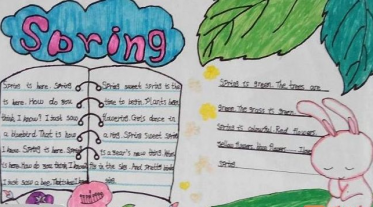 Spring
Spring is here. Spring
is here. How do you
think I know? I just saw
a bluebird. That is how
I know. Spring is here. Spring
is here. How do you think I know?
I just saw a bee. That's how I know
Spring sweet spring is the
time to begin. Plants
Girls dance in
a ring. Spring sweet spring
is a year's
in the sky. And pretty birds
Spring is green. The trees are
green. The grass is green.
Spring is colourful. Red flowers
Yellow flowers blue flowers I
spring.